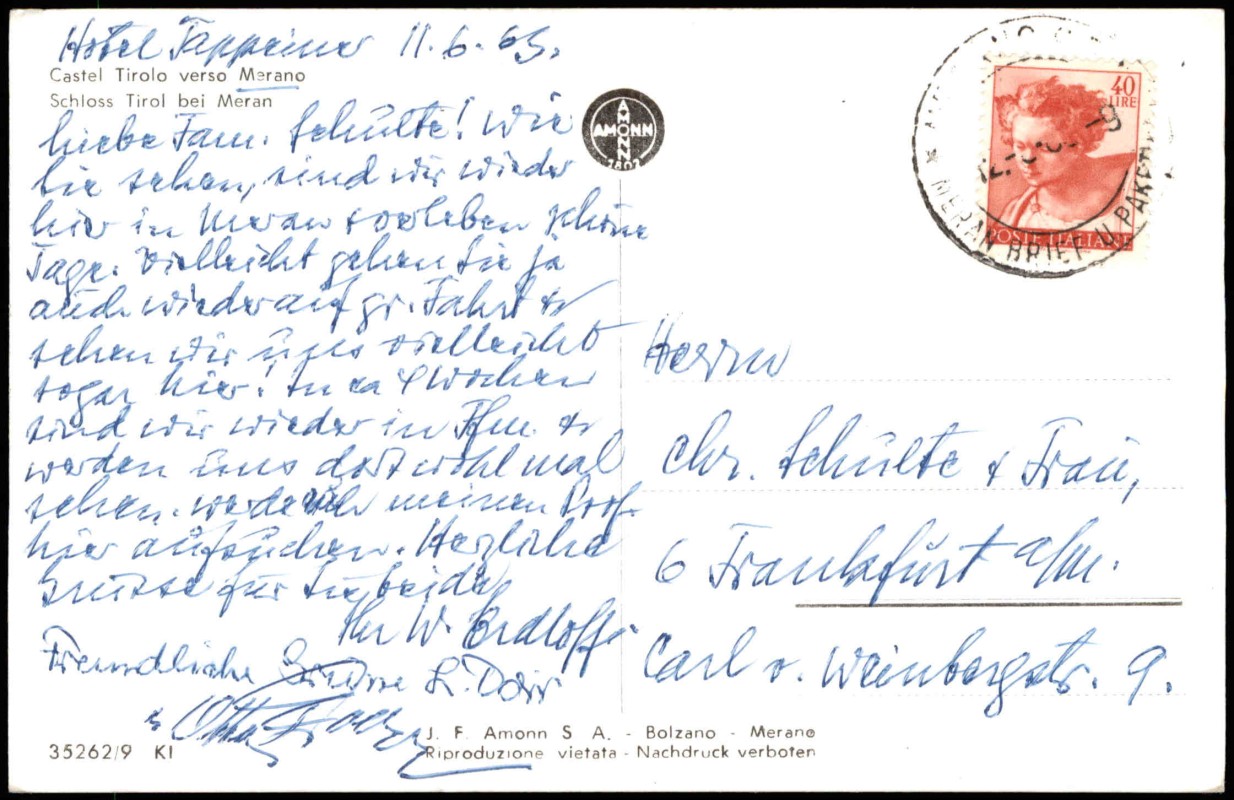 Hotel Tappeiner 11.6.63.
Castel Tirolo verso Merano
Schloss Tirol bei Meran
liebe Fam. Schulte! Wie
Sie sehen, sind wir wieder
hier in Meran verleben schöne
Tage. Vielleicht gehen Sie ja
auch wieder auf gr. Fahrt &
sehen wir uns vielleicht
sogar hier! In ca 4 Wochen
sind wir wieder in Ffm. &
werden uns dort wohl mal
sehen. werde meinen Prof.
hier aufsuchen. Herzliche
Grüsse für Sie beide
Ihr W.
Freundliche
Otto
AMONN
AMONN
1802
40
LIRE
POSTE ITALIANE
MERAN BRIEF U. PAKETE
Herrn
Chr. Schulte & Frau,
6 Frankfurt a/M.
Carl v. Weinbergstr. 9.
J. F. Amonn S A. - Bolzano - Merano
Riproduzione vietata - Nachdruck verboten
35262/9 KI